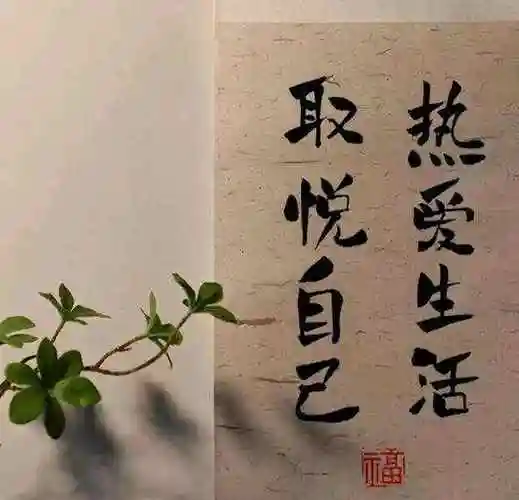 热爱生活
取悦自己